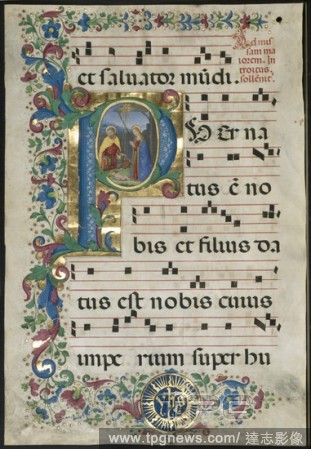 et saluator mūdi.
Ad mis
sam ma
iorem. In
troitus
sollēnit.
P Uer na
tus ē no
bis et filius da
tus est nobis cuius
impe rium super hu
www.tpgnews.com/達志影像